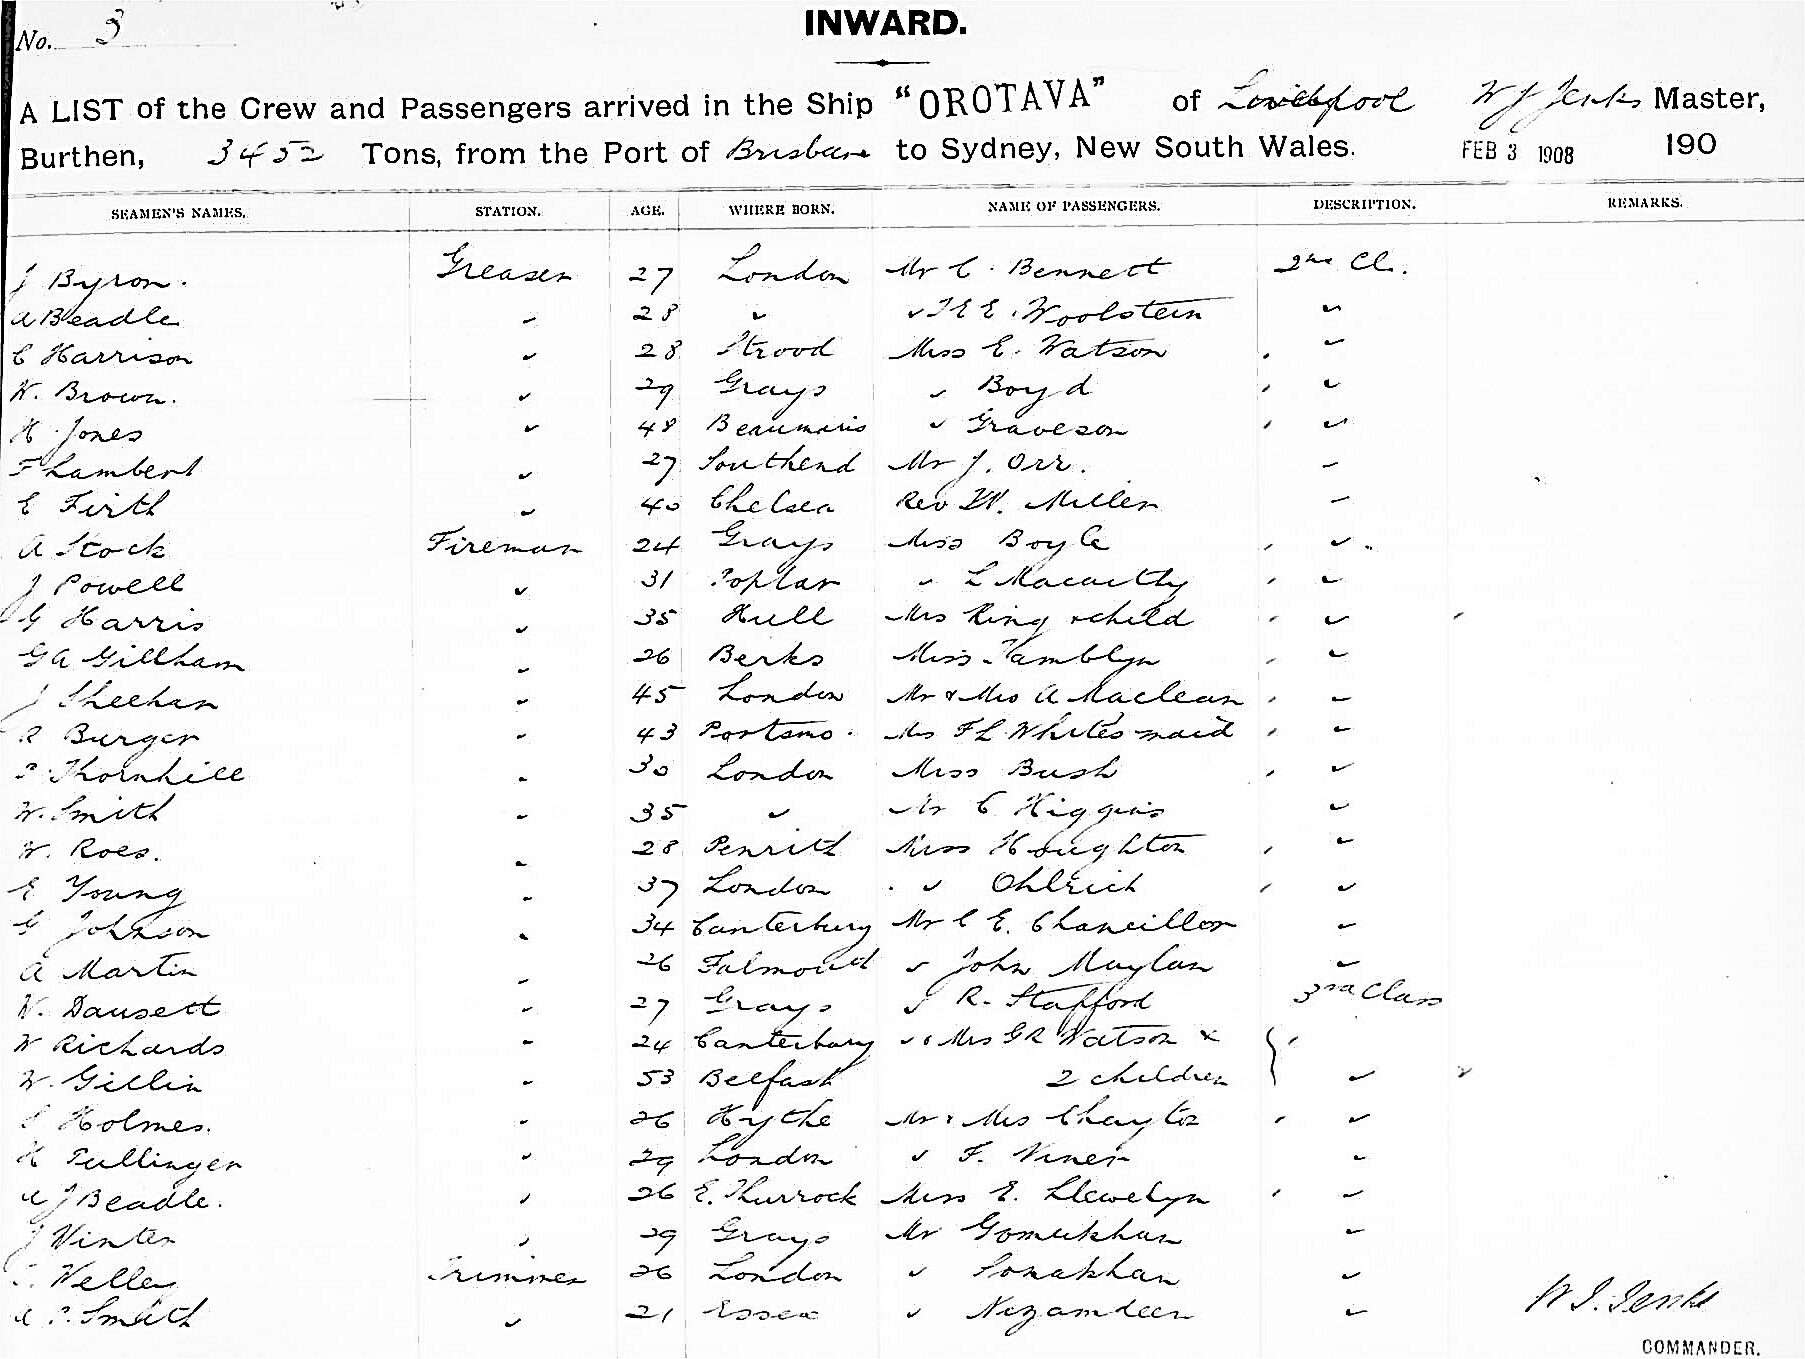 No. 3
INWARD.
A LIST of the Crew and Passengers arrived in the Ship "OROTAVA" of Liverpool W J Jenks Master,
Burthen, 3452 Tons, from the Port of Brisbane to Sydney, New South Wales. FEB 3 1908 190
SEAMEN'S NAMES. STATION. AGE. WHERE BORN. NAME OF PASSENGERS. DESCRIPTION. REMARKS.
J Byron. Greaser 27 London Mr C. Bennett 2nd Cl.
A Beadle " 28 " " T E E. Woolstein "
C Harrison " 28 Strood Miss E. Watson "
W. Brown. " 29 Grays " Boyd "
H. Jones " 48 Beaumaris " Graveson "
F Lambert " 27 Southend Mr J. Orr. "
E Firth " 40 Chelsea Rev W. Miller "
A Stock Fireman 24 Grays Miss Boyle "
J Powell " 31 Poplar " L Macarthy "
G Harris " 35 Hull Mrs King & child "
GA Gillham " 26 Berks Miss Tamblyn "
J Sheehan " 45 London Mr & Mrs A Maclean "
R Burger " 43 Portsmo. Mrs F L White's maid "
Thornhill " 30 London Miss Bush "
W. Smith " 35 " Mr C Higgins "
W. Roes. " 28 Penrith Miss Houghton "
E Young " 37 London " Ohlrich "
G Johnson " 34 Canterbury Mr C E. Chancillor "
A Martin " 26 Falmouth " John Maylan "
W. Dausett " 27 Grays " R. Stafford 3rd Class
W Richards " 24 Canterbury " & Mrs G R Watson &
W. Gillin " 53 Belfast 2 children "
S Holmes. " 26 Hythe Mr & Mrs Chaytor "
H Pullinger " 29 London " F. Viner "
A J Beadle. " 26 E. Thurrock Miss E. Llewelyn "
J Winter " 29 Grays Mr Gomukhan "
Welley Trimmer 26 London " Sonakhan "
A P. Smith " 21 Essex " Nizamdeen "
W J. Jenks
COMMANDER.